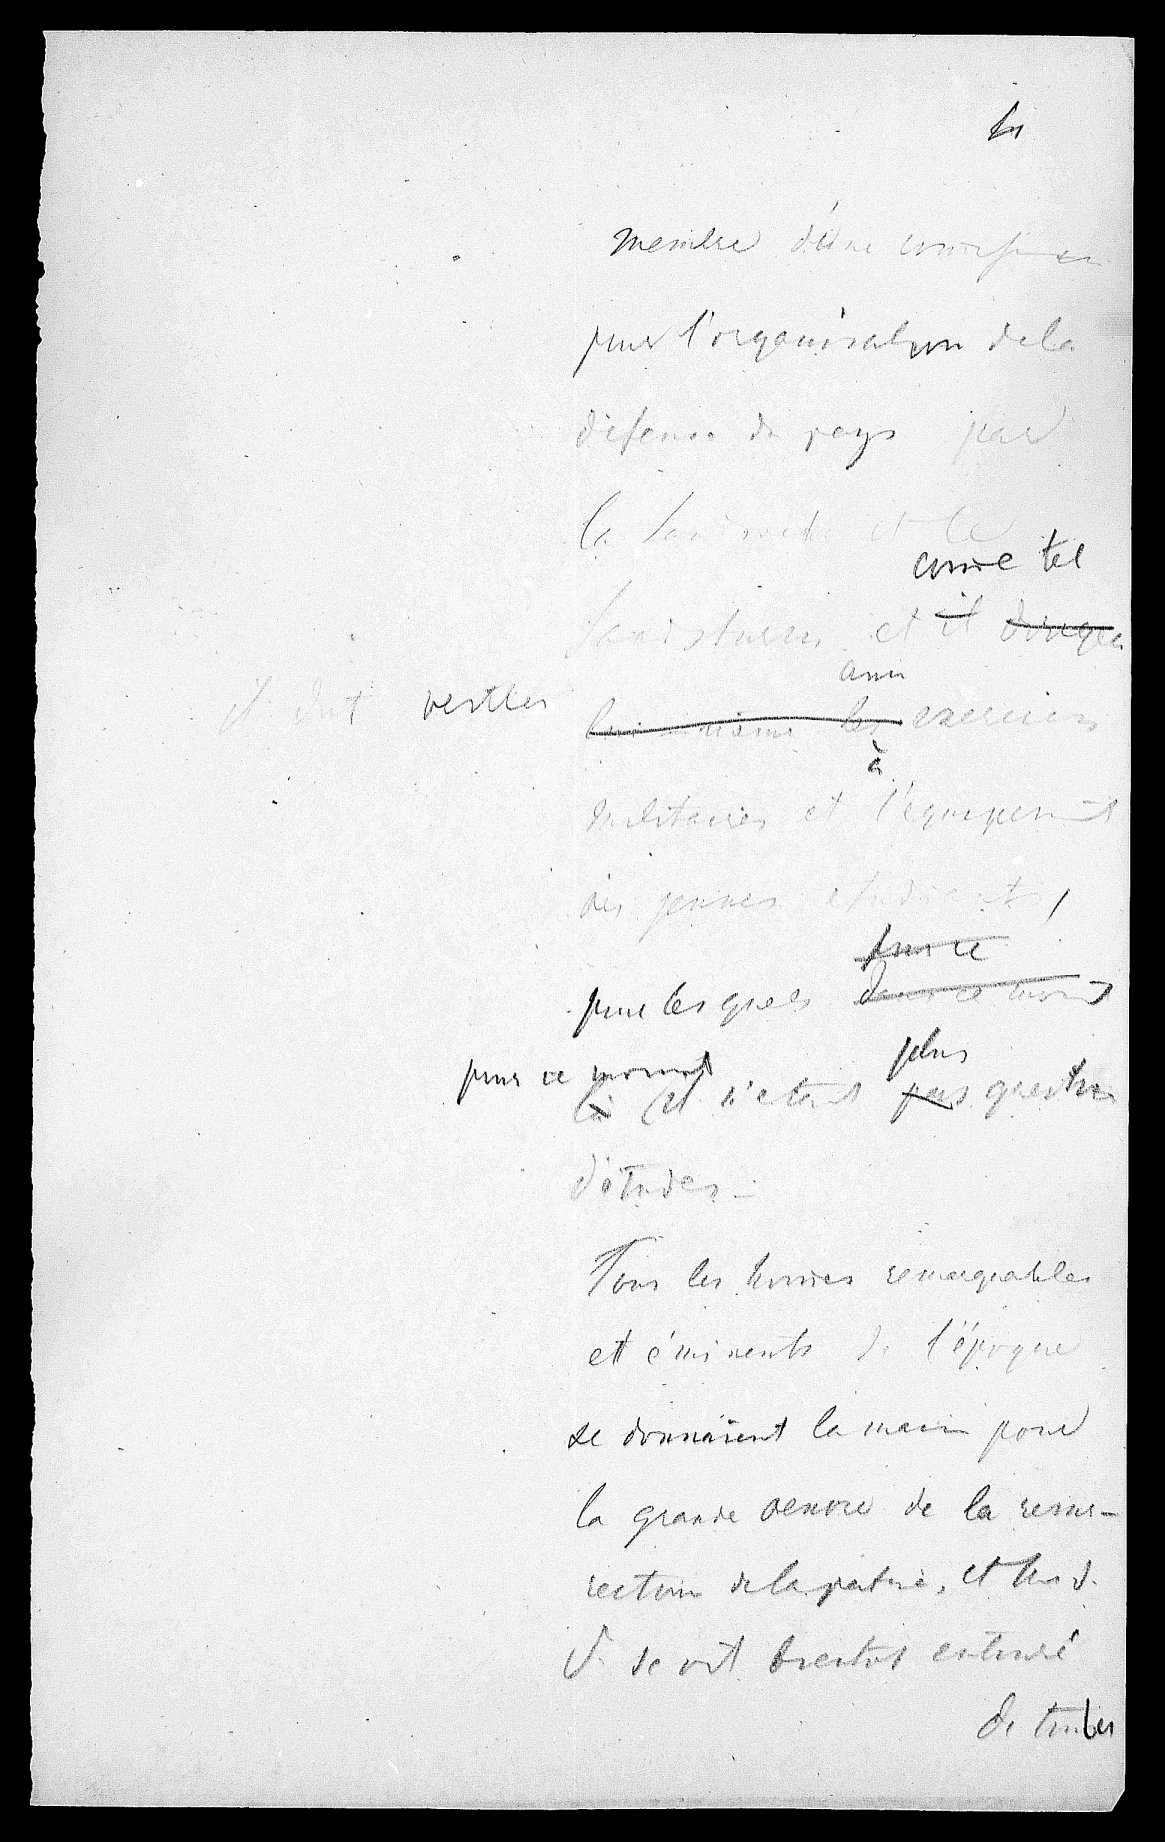 membre d'une commission
pour l'organisation de la
défense du pays par
la Landwehr et le
comme tel
Landsturm et il dirigea
aux
il dut veiller lui même les exercices
à
militaires et l'équipement
des jeunes étudiants,
pour ce
pour lesquels dans ce moment
pour ce moment plus
là il n'etait pas question
d'études.
Tous les hommes remarquables
et éminents de l'époque
se donnaient la main pour
la grande oeuvre de la resur-
rection de la patrie, et
se vit bientot entouré
de tous les